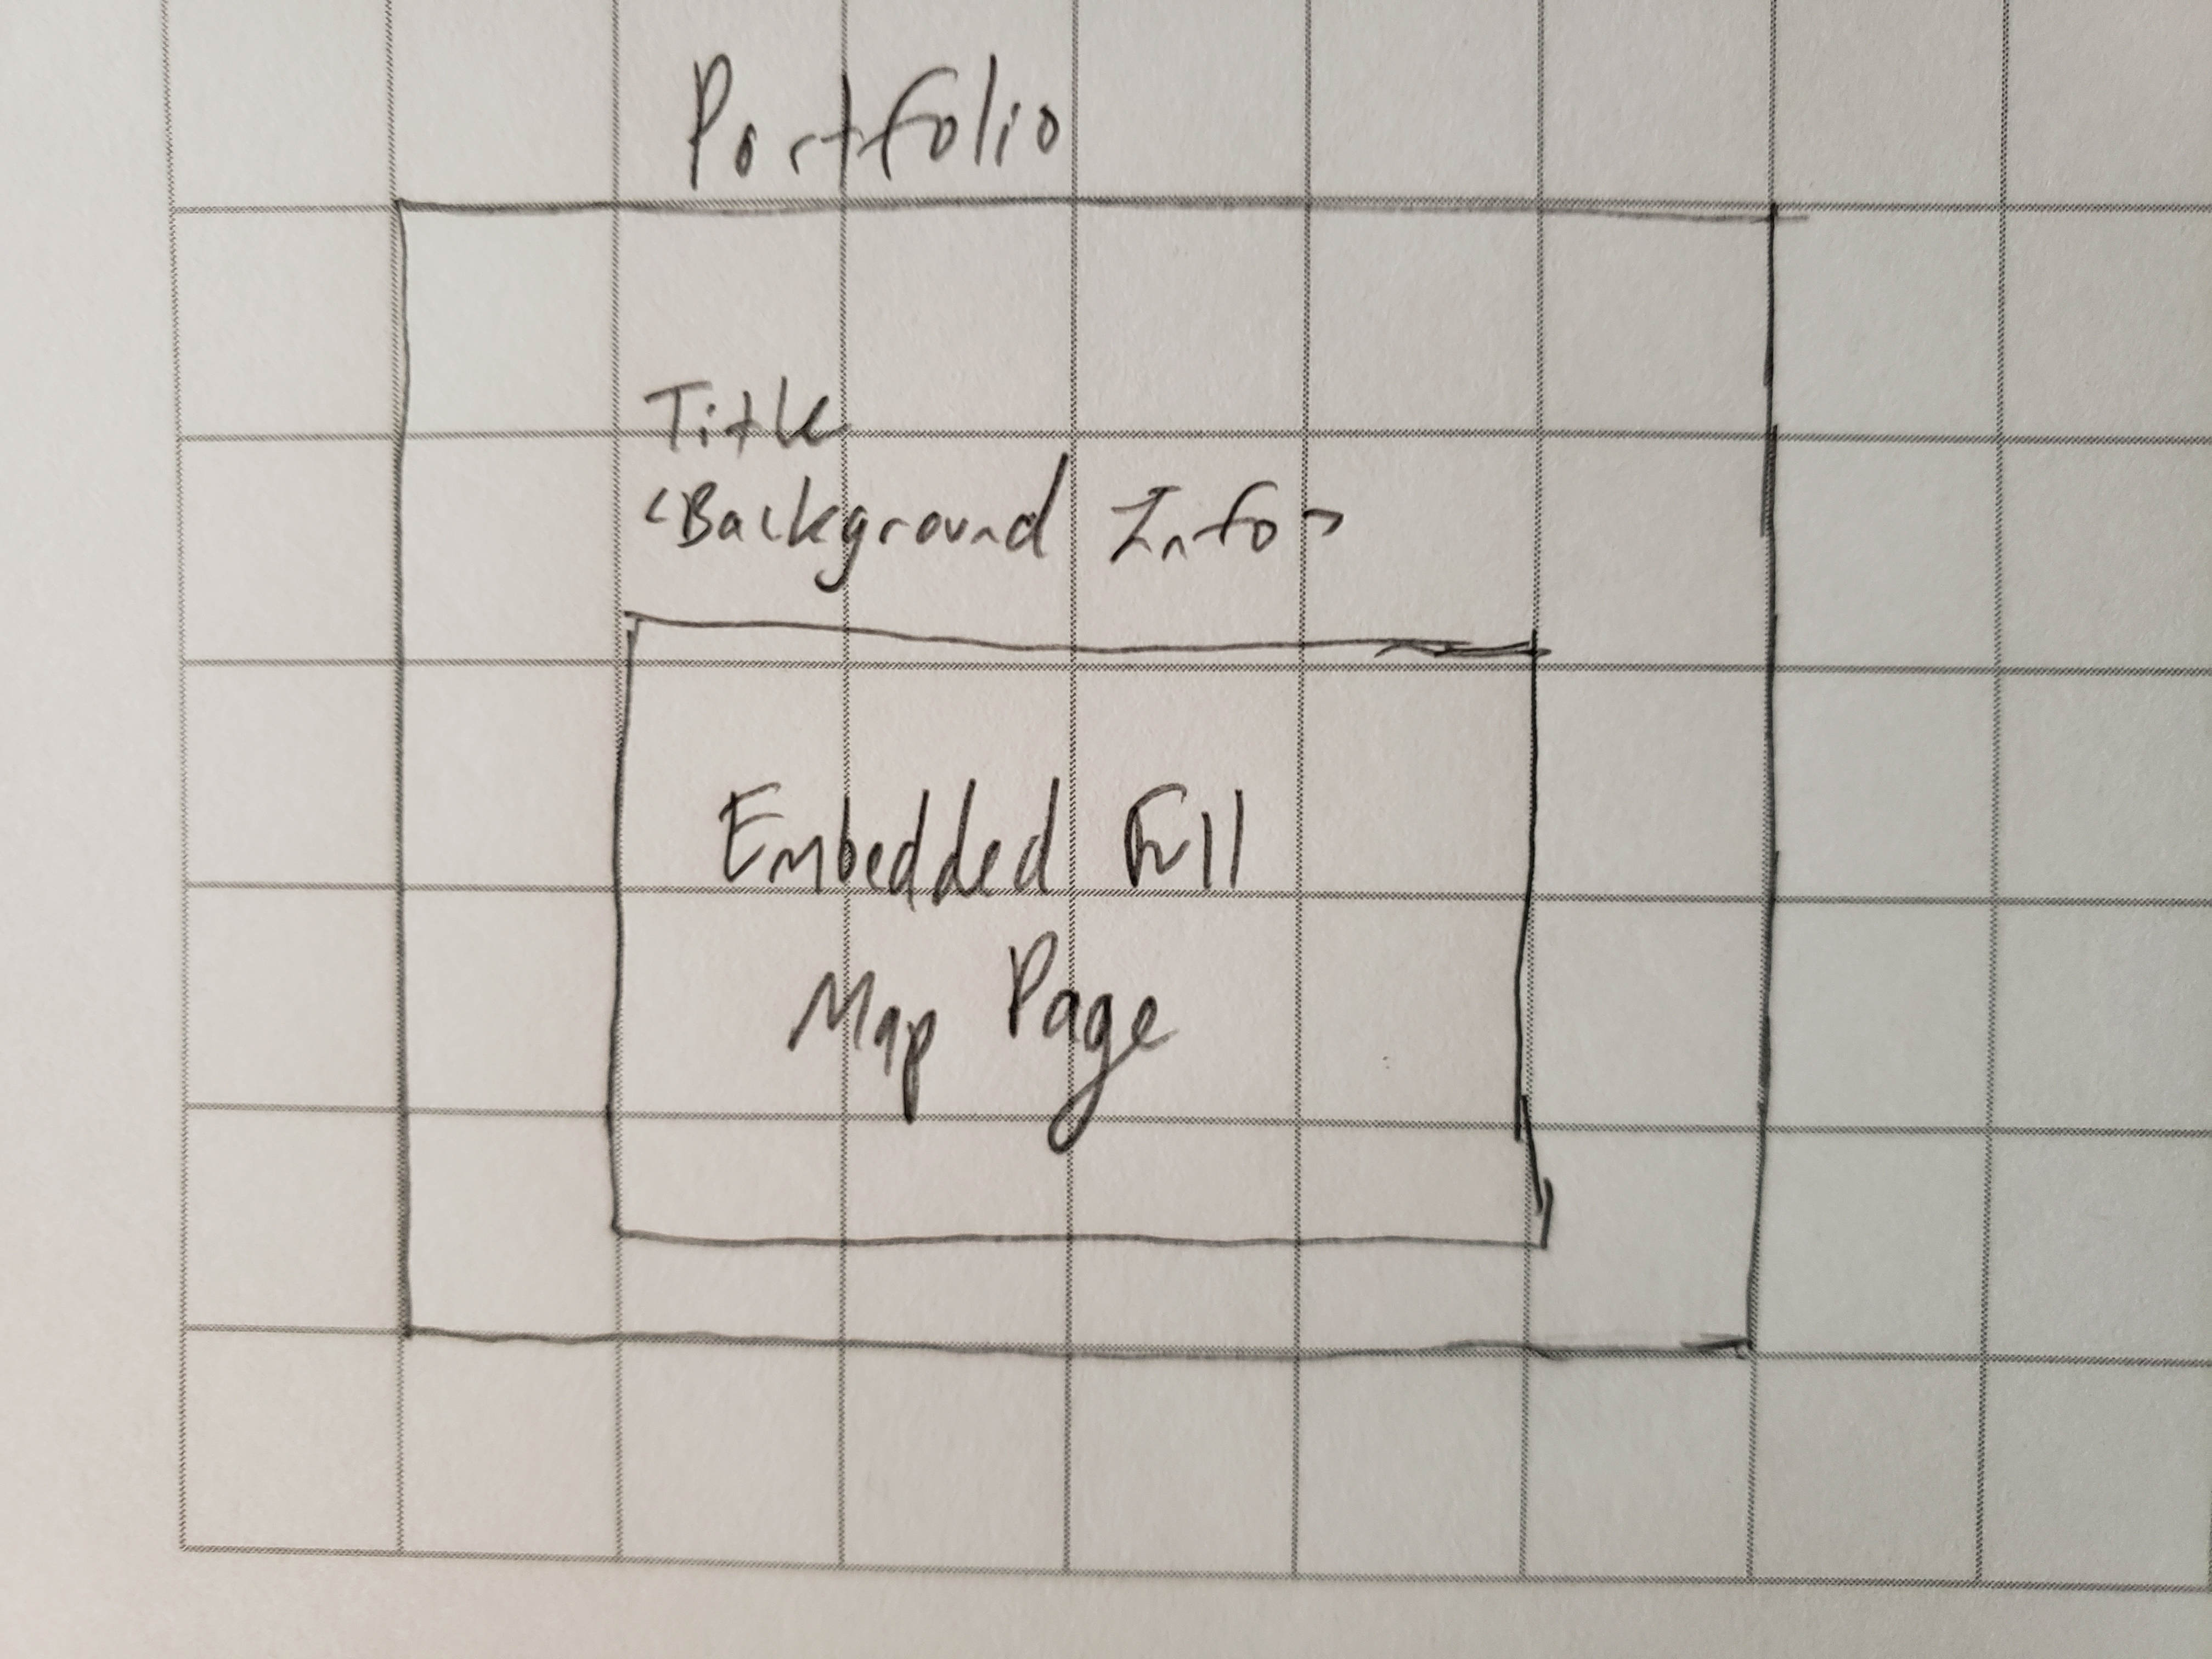 Portfolio
Title
<Background Info>
Embedded Full
Map Page